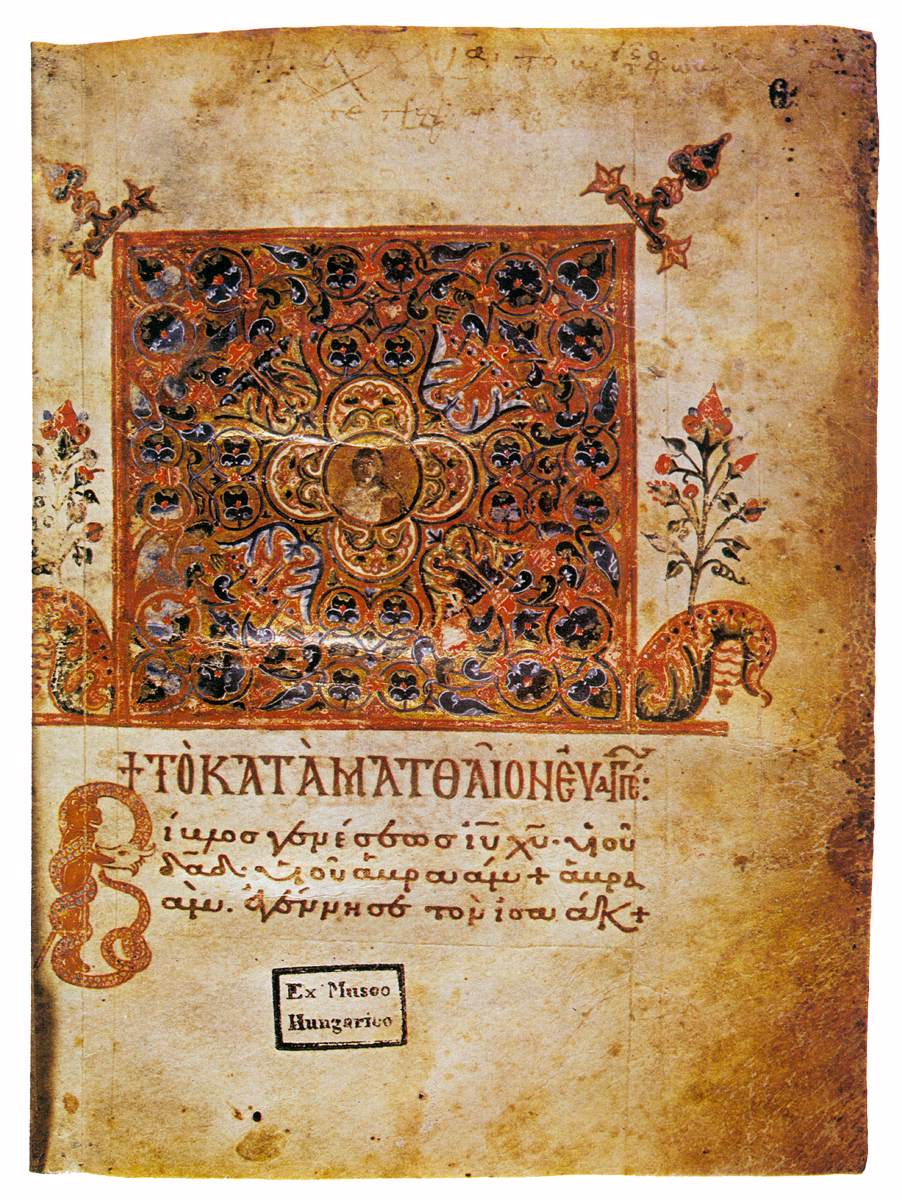 + ΤῸ ΚΑΤᾺ ΜΑΤΘΑῖΟΝ ΕΥ̓ΑΓΓΈ:
Βίβλος γενέσεως ἰ̅υ̅ χ̅υ̅· υἱοῦ
δ̅α̅δ̅· υἱοῦ ἀβραάμ + ἀβρα
ὰμ. ἐγέννησε τὸν ἰσαάκ +
Ex Museo
Hungarico